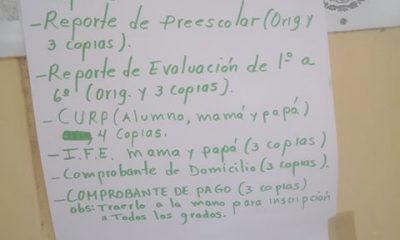 -Reporte de Preescolar (Orig y
3 copias).
-Reporte de Evaluación de 1º a
6º (Orig. y 3 copias).
- CURP (Alumno, mamá y papá)
4 Copias.
- I.F.E. mama y papá (3 copias)
-Comprobante de Domicilio (3 copias).
-COMPROBANTE DE PAGO (3 copias)
obs: Traerlo a la mano para inscripción
a Todos los grados.